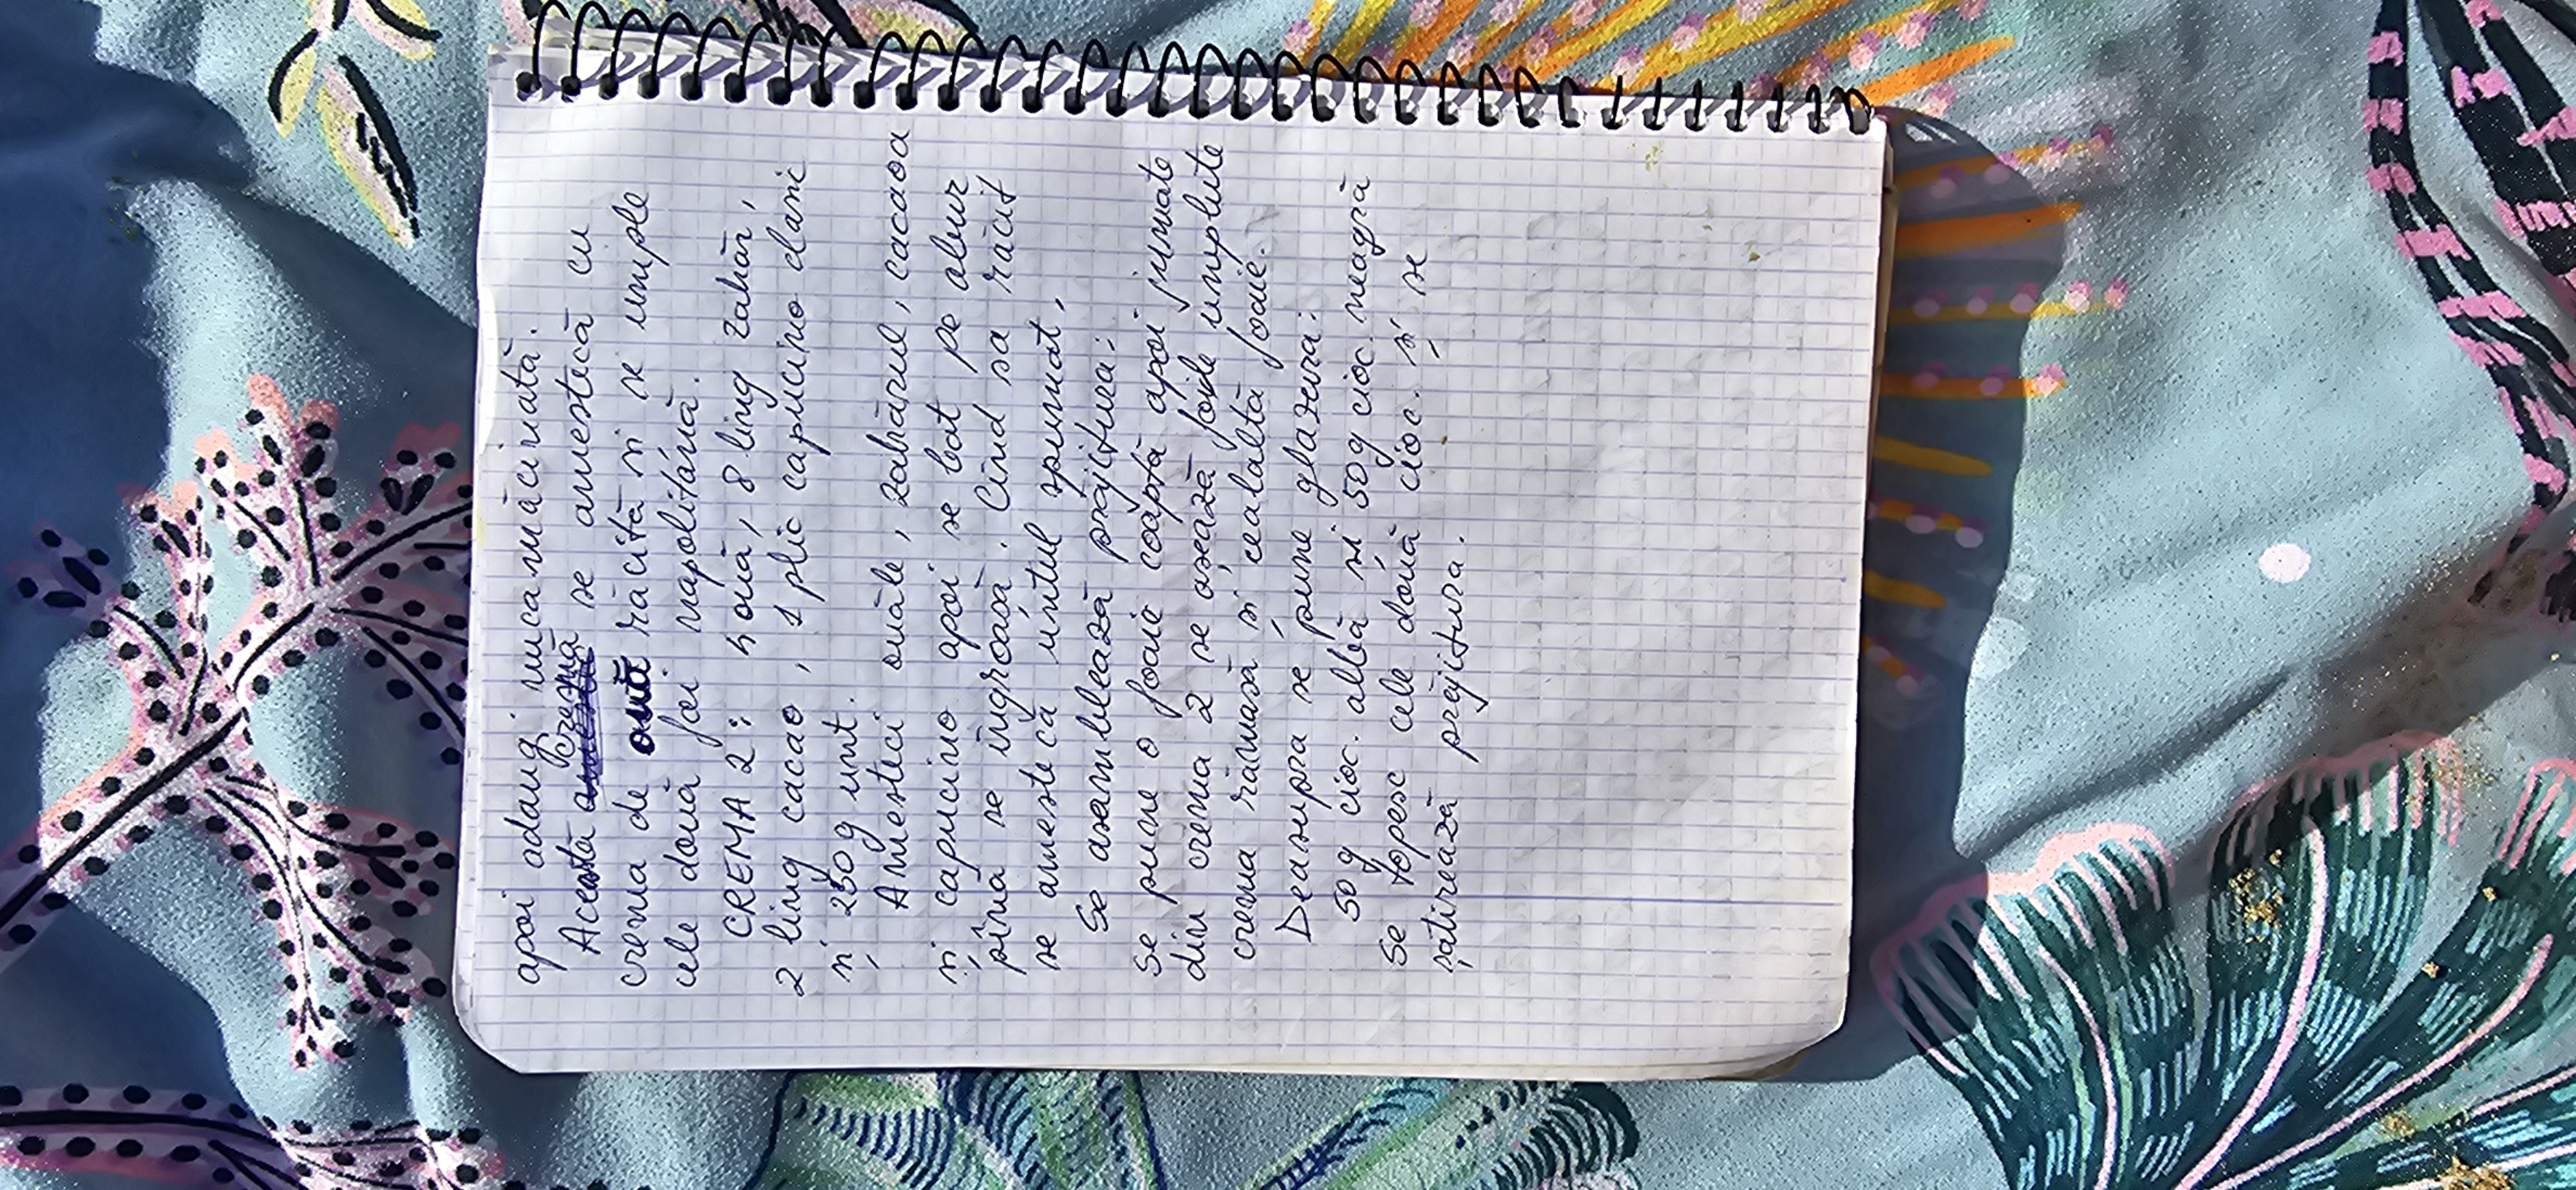 apoi adaug nuca măcinată.
Aceastā cremă se amestecă cu
crema de ouă răcită și se umple
cele două foi napolitană.
CREMA 2: 4 ouă, 8 ling zahăr,
2 ling cacao, 1 plic capucino clasic
și 250 g unt.
Amesteci ouăle, zahărul, cacaoa
și capucino apoi se bat pe abur
pînă se îngroașă. Cînd sa răcit
se amestecă untul spumat.
Se asamblează prăjitura:
Se pune o foaie coaptă apoi jumate
din crema 2 se așează foile umplute
crema rămasă și cealaltă foaie.
Deasupra se pune glazura:
50 g cioc. albă și 50 g cioc. neagră
Se topesc cele două cioc. și se
șatirează prăjitura.